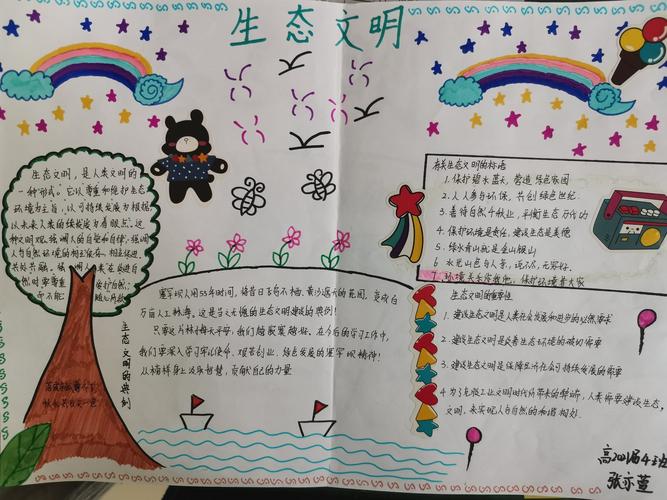 生态文明
生态文明，是人类文明的
一种形式。它以尊重和维护生态
环境为主旨，以可持续发展为根据
以未来人类的继续发展为着眼点。这
种文明观强调人的自觉和自律，强调
人与自然环境的相互依存、相互促进、
生态文明的典例
塞罕坝人用55年时间，使昔日飞鸟不栖、黄沙遮天的荒原，变成百
万亩人工林海，这是当之无愧的生态文明建设的典例！
只要这片林海每天平安，我们
我们要深入学习牢记使命、艰苦创业、绿色发展的塞罕坝精神！
从精神身上汲取智慧，贡献自己的力量
有关生态文明的标语
1. 保护碧水蓝天，营造绿色家园
2. 人人参与环保，共创绿色世纪
3. 善待自然千秋业，平衡生态万代功
4. 保护环境是责任，建设生态是美德
5. 绿水青山就是金山银山
6. 水光山色与人亲，说不尽，无穷好。
7. 环境关系你我他，保护环境靠大家
生态文明的重要性
1. 建设生态文明是人类社会发展和进步的必然要求
2. 建设生态文明是改善生态环境的迫切需要
3. 建设生态文明是保障经济社会可持续发展的需要
4. 为了克服工业文明时代所带来的弊端，人类需要建设生态
文明，来实现人与自然的和谐相处。
张亦萱